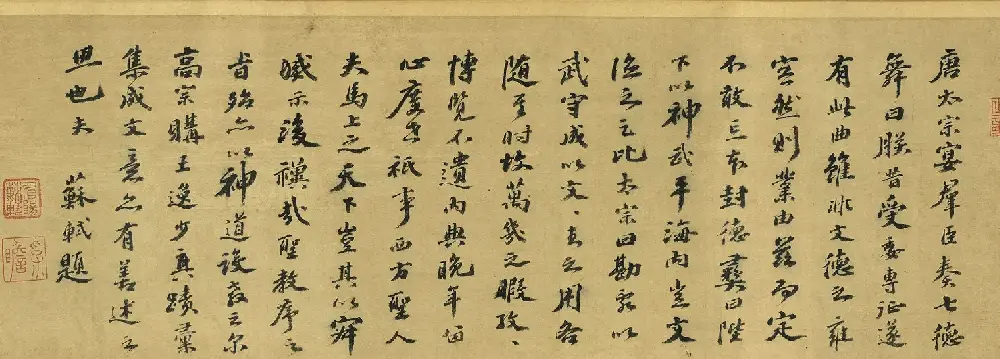 唐太宗宴羣臣奏七德
舞曰朕昔受委專征遂
有此曲雖非文德之雍
容然則業由茲而定
不敢忘本封德彝曰陛
下以神武平海內豈文
德之足比太宗曰勘亂以
武守成以文、武之用各
隨其時故萬幾之暇孜、
博覽不遺內典晚年留
心祇事西方聖人
夫馬上之天下豈其以寂
滅示後禩哉聖教序之
旨殆亦以神道設教云爾
高宗購王逸少真蹟彙
集成文意亦有善述之
思也夫 蘇軾題